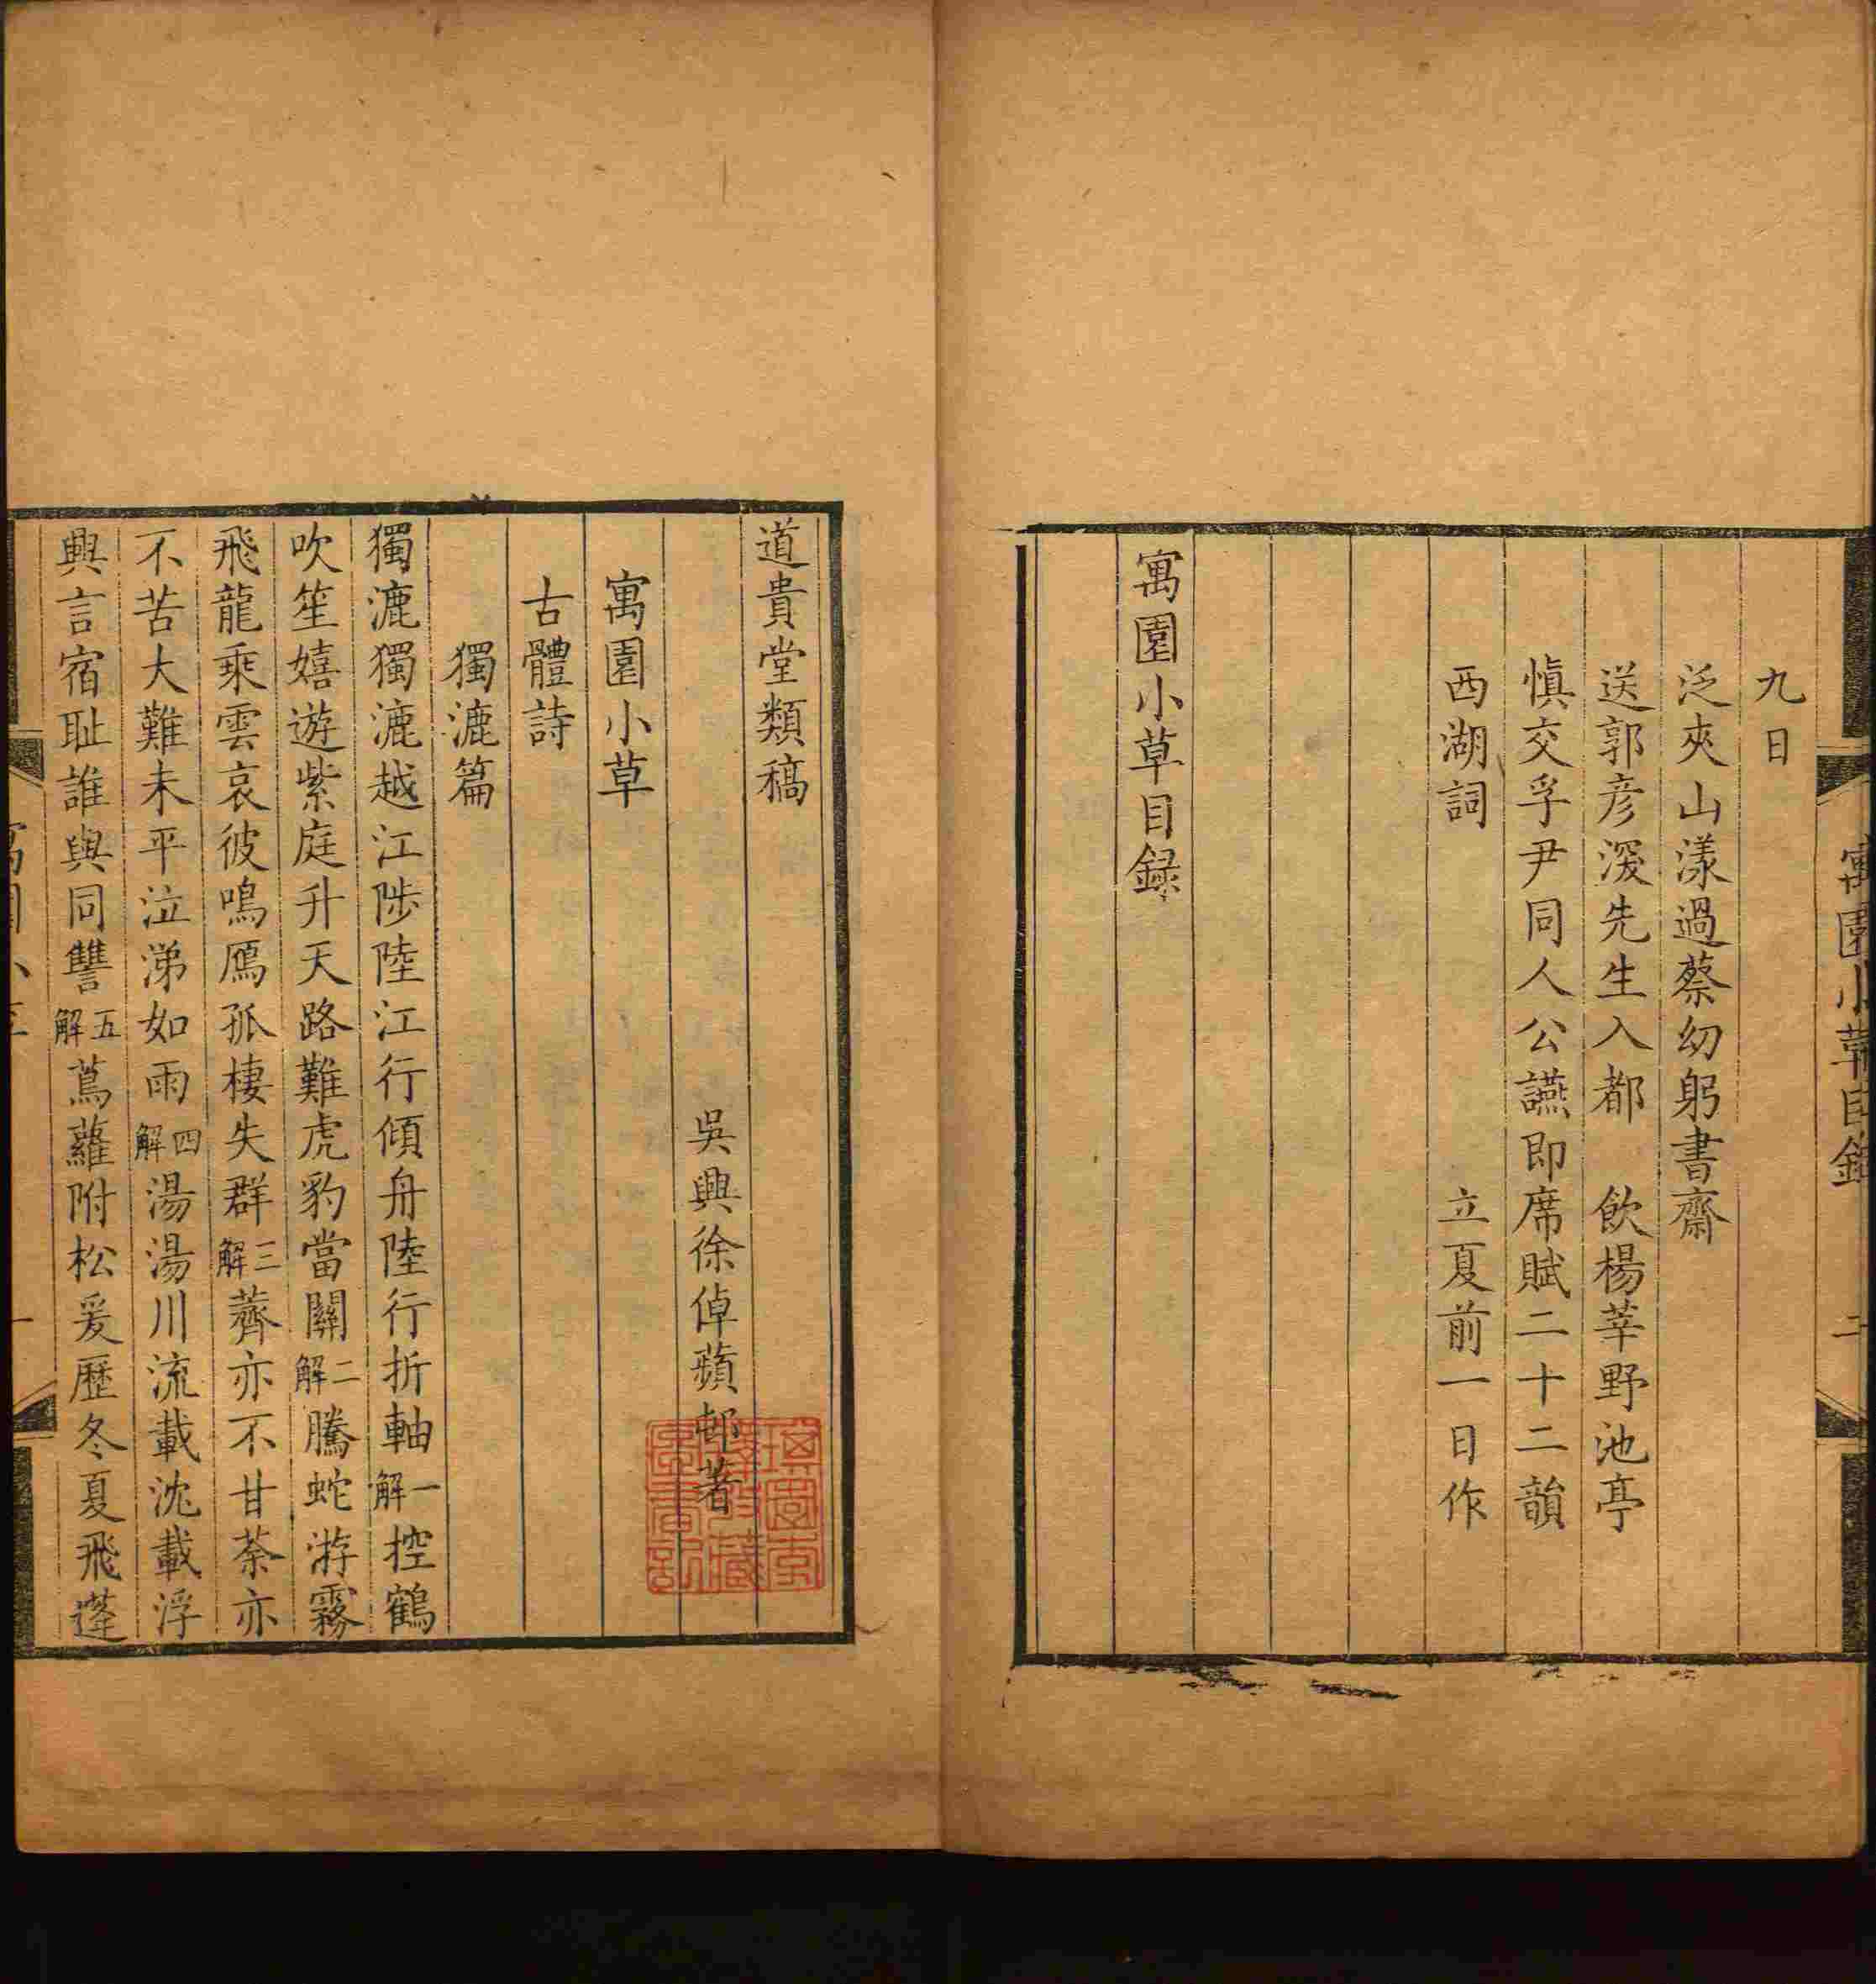 寓園小草目錄
二
九日
泛夾山漾過蔡幼躬書齋
送郭彥深先生入都　飲楊莘野池亭
慎交孚尹同人公讌即席賦二十二韻
西湖詞　立夏前一日作
寓園小草目録
道貴堂類稿
吳興徐倬蘋邨著
寓園小草
古體詩
獨漉篇
獨漉獨漉越江陟陸江行傾舟陸行折軸一解控鶴
吹笙嬉遊紫庭升天路難虎豹當關二解騰蛇游霧
飛龍乘雲哀彼鳴鴈孤棲失群三解薺亦不甘荼亦
不苦大難未平泣涕如雨四解湯湯川流載沈載浮
興言宿耻誰與同讐五解蔦蘿附松爰歷冬夏飛蓬